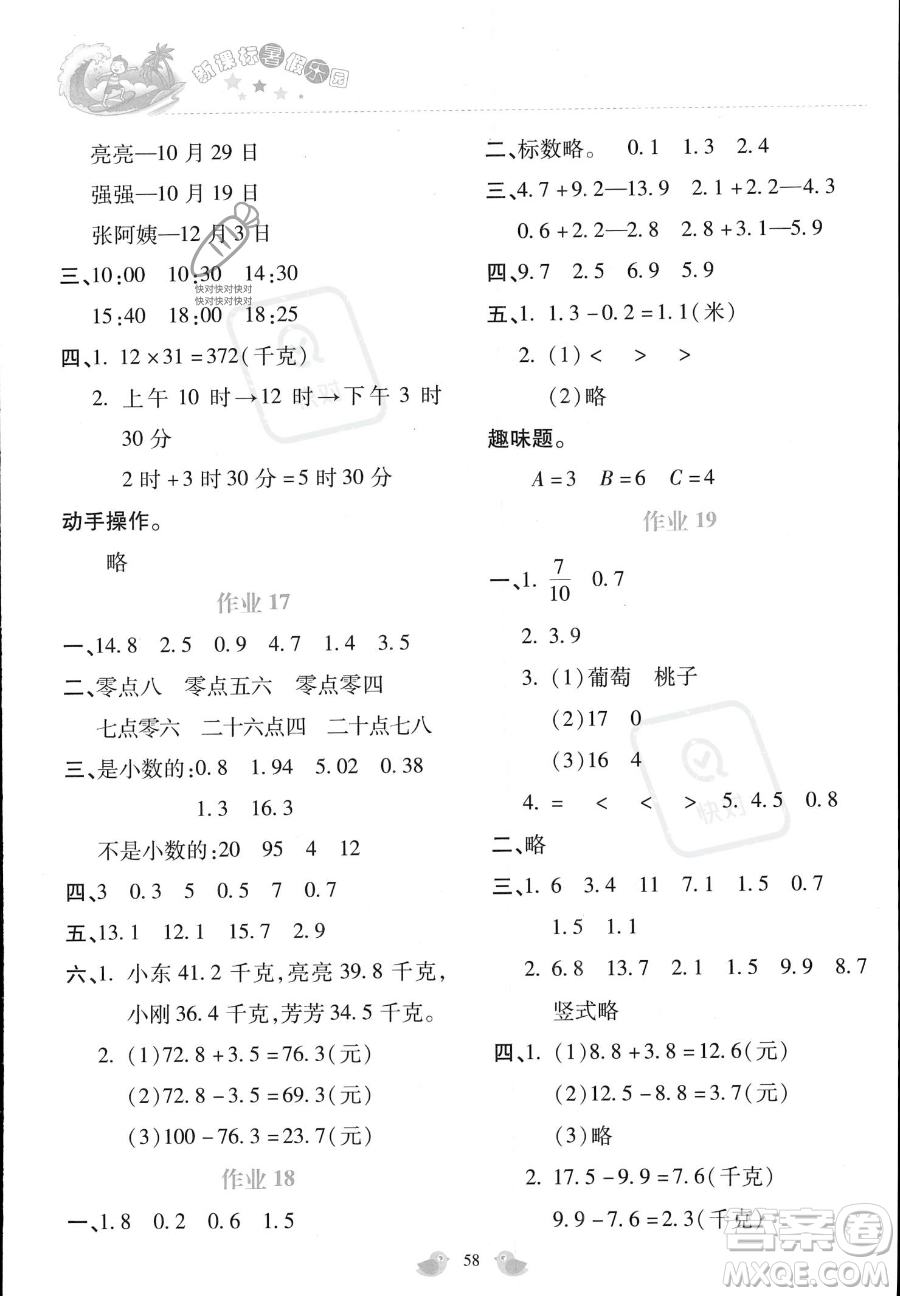 新课标暑假乐园
亮亮—10月29日
强强—10月19日
张阿姨—12月3日
三、10:00 10:30 14:30
15:40 18:00 18:25
四、1. 12×31=372(千克)
2. 上午10时→12时→下午3时
30分
2时+3时30分=5时30分
动手操作。
略
作业17
一、14.8 2.5 0.9 4.7 1.4 3.5
二、零点八 零点五六 零点零四
七点零六 二十六点四 二十点七八
三、是小数的:0.8 1.94 5.02 0.38
1.3 16.3
不是小数的:20 95 4 12
四、3 0.3 5 0.5 7 0.7
五、13.1 12.1 15.7 2.9
六、1. 小东41.2千克,亮亮39.8千克,
小刚36.4千克,芳芳34.5千克。
2. (1)72.8+3.5=76.3(元)
(2)72.8-3.5=69.3(元)
(3)100-76.3=23.7(元)
作业18
一、1.8 0.2 0.6 1.5
二、标数略。 0.1 1.3 2.4
三、4.7+9.2—13.9 2.1+2.2—4.3
0.6+2.2—2.8 2.8+3.1—5.9
四、9.7 2.5 6.9 5.9
五、1. 1.3-0.2=1.1(米)
2. (1)< > >
(2)略
趣味题。
A=3 B=6 C=4
作业19
一、1. 7/10 0.7
2. 3.9
3. (1)葡萄 桃子
(2)17 0
(3)16 4
4. = < < > 5. 4.5 0.8
二、略
三、1. 6 3.4 11 7.1 1.5 0.7
1.5 1.1
2. 6.8 13.7 2.1 1.5 9.9 8.7
竖式略
四、1. (1)8.8+3.8=12.6(元)
(2)12.5-8.8=3.7(元)
(3)略
2. 17.5-9.9=7.6(千克)
9.9-7.6=2.3(千克)
58
快对快对快对
快对快对快对
快对
快对
答案圈
MXQE.COM